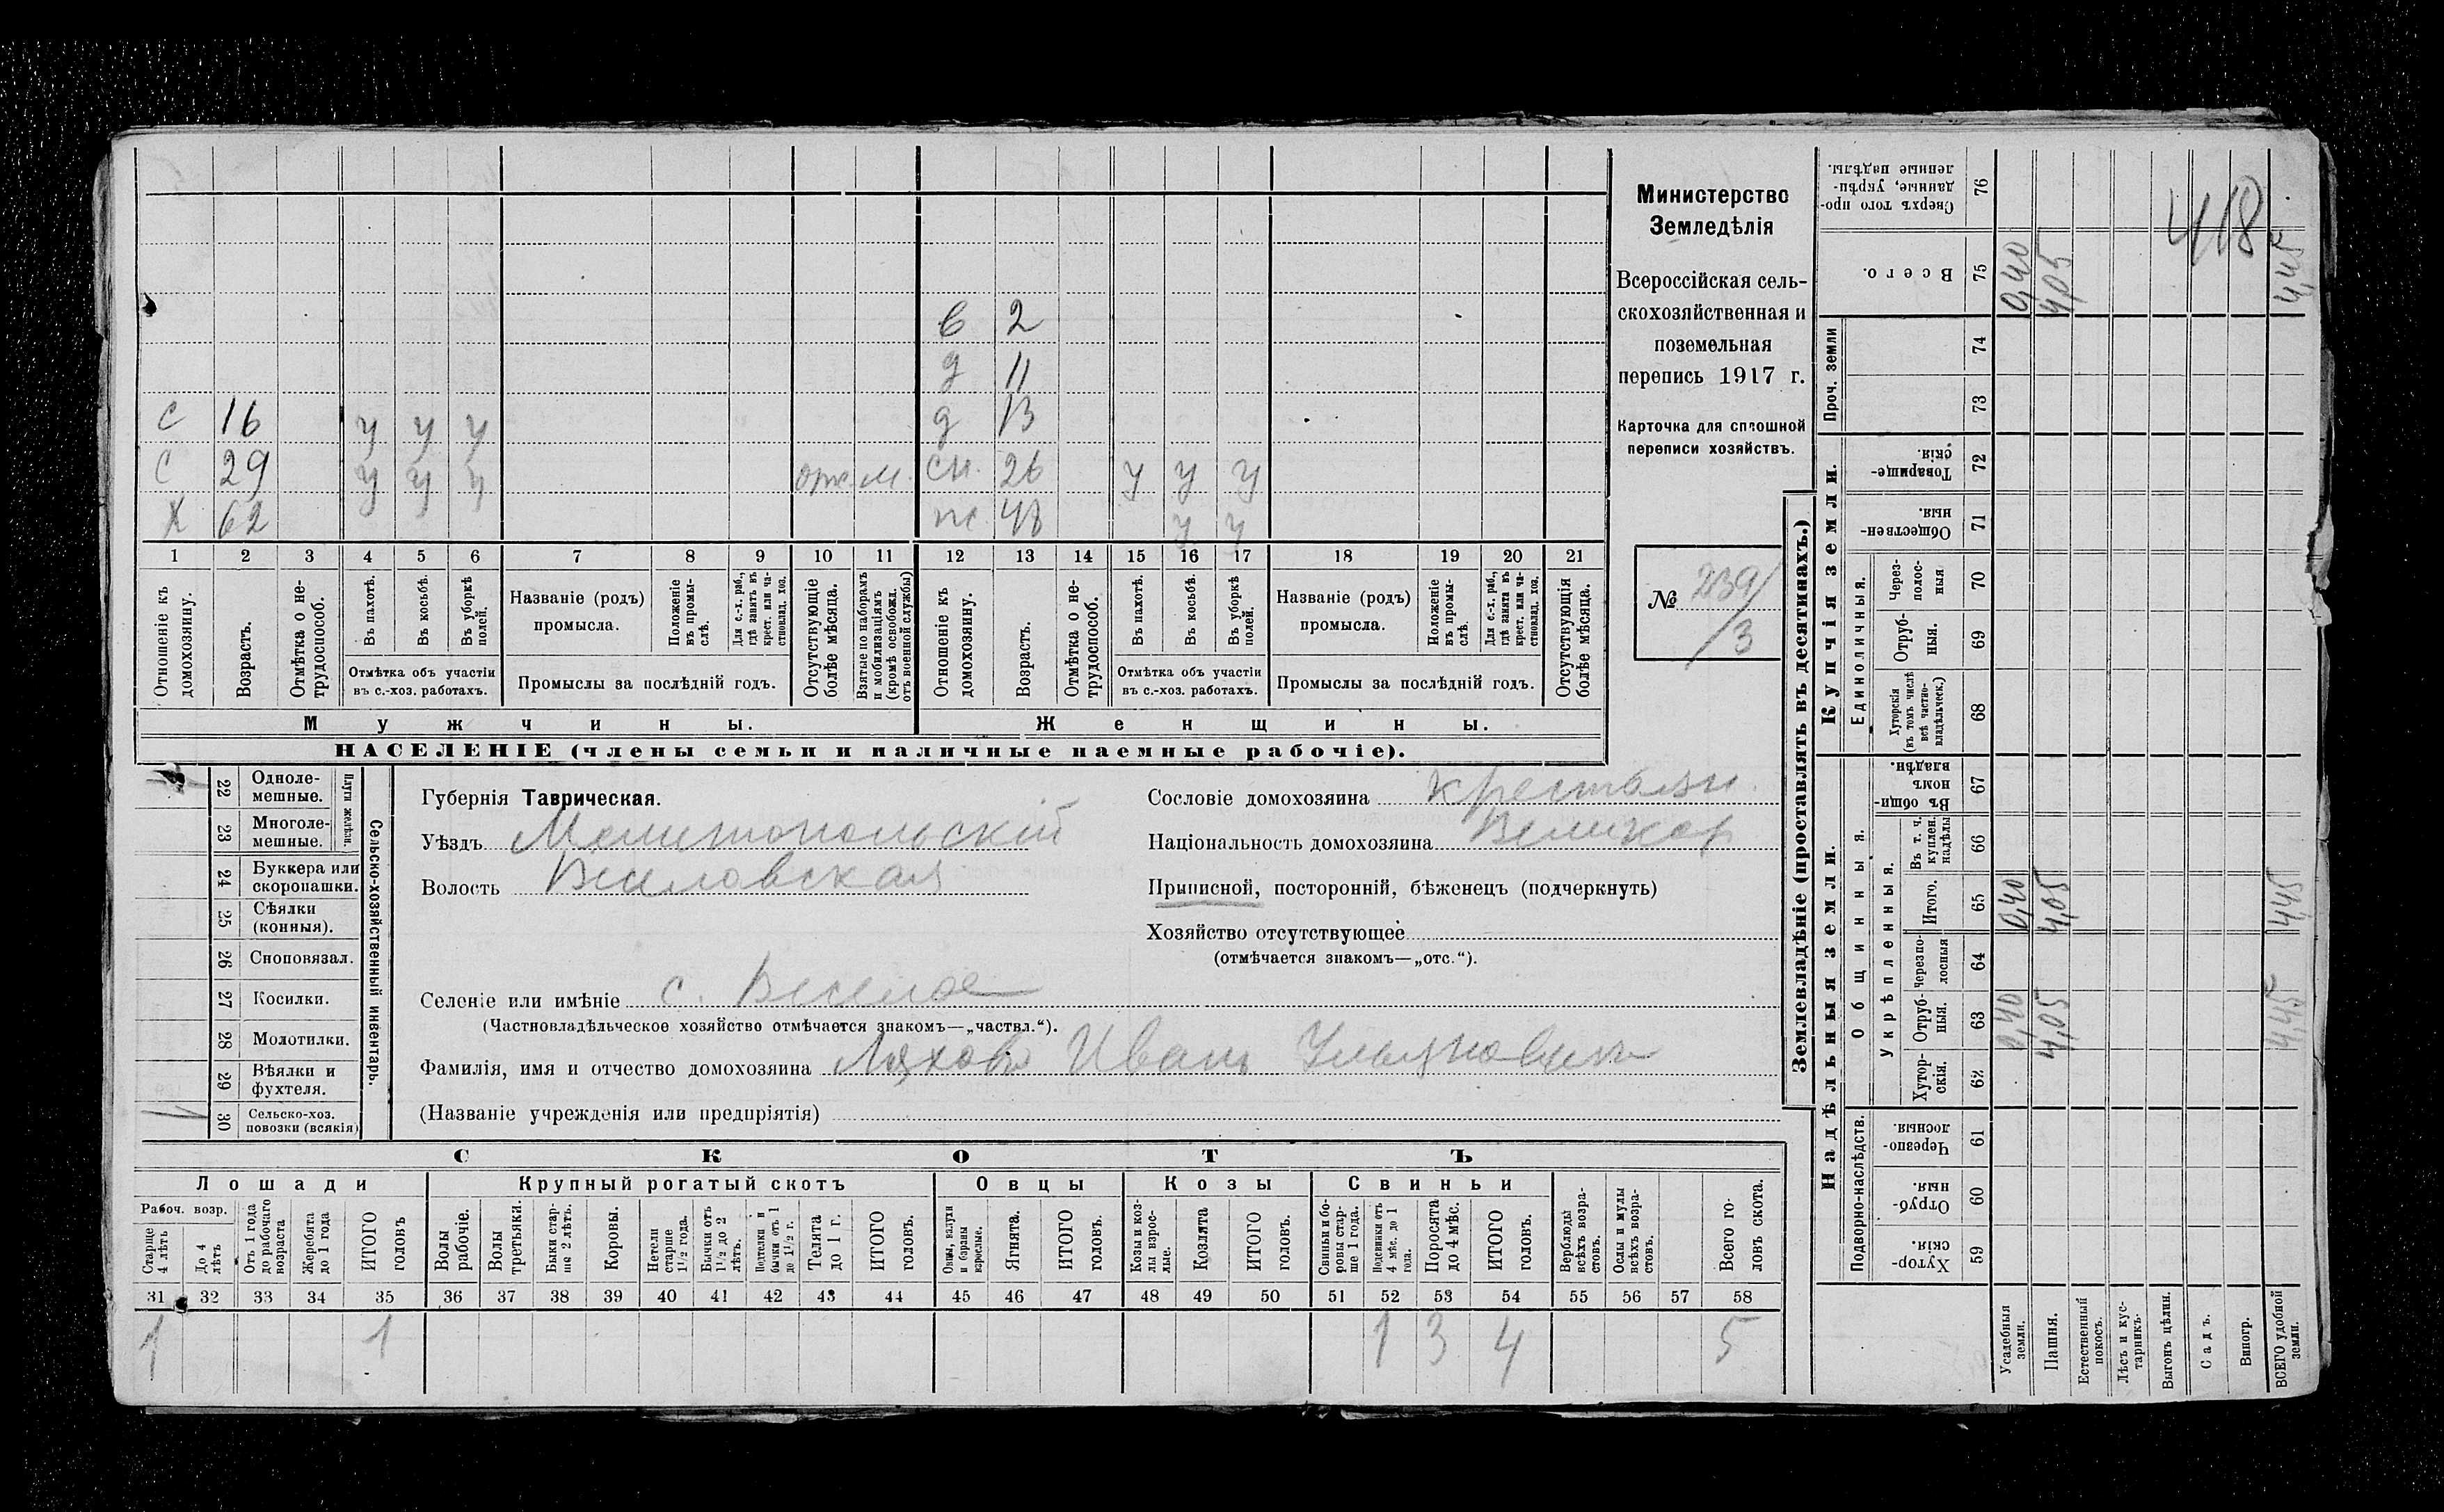 418
Министерство
Земледѣлія
Всероссійская сель-
скохозяйственная и
поземельная
перепись 1917 г.
Карточка для сплошной
переписи хозяйствъ.
№ 239/3
в 2
д 11
с 16 у у у д 13
с 29 у у у отс. м. сн. 26 у у у
х 62 ж 48 у у
1 2 3 4 5 6 7 8 9 10 11 12 13 14 15 16 17 18 19 20 21
Отношеніе къ домохозяину.
Возрастъ.
Отмѣтка о не-трудоспособ.
Въ пахотѣ.
Въ косьбѣ.
Въ уборкѣ полей.
Отмѣтка объ участіи
въ с.-хоз. работахъ.
Названіе (родъ)
промысла.
Положеніе въ промы-слѣ.
Для с.-х. раб., гдѣ занятъ въ крест. или ча-стновлад. хоз.
Промыслы за послѣдній годъ.
Отсутствующіе болѣе мѣсяца.
Взятые по наборамъ и мобилизаціямъ (кромѣ освобожд. отъ военной службы)
Отношеніе къ домохозяину.
Возрастъ.
Отмѣтка о не-трудоспособ.
Въ пахотѣ.
Въ косьбѣ.
Въ уборкѣ полей.
Отмѣтка объ участіи
въ с.-хоз. работахъ.
Названіе (родъ)
промысла.
Положеніе въ промы-слѣ.
Для с.-х. раб., гдѣ занята въ крест. или ча-стновлад. хоз.
Промыслы за послѣдній годъ.
Отсутствующія болѣе мѣсяца.
Мужчины. Женщины.
НАСЕЛЕНІЕ (члены семьи и наличные наемные рабочіе).
Сельско-хозяйственный инвентарь.
Плуги желѣзн.
22 Одноле-мешные.
23 Многоле-мешные.
24 Буккера или скоропашки.
25 Сѣялки (конныя).
26 Сноповязал.
27 Косилки.
28 Молотилки.
29 Вѣялки и фухтеля.
30 Сельско-хоз. повозки (всякія) 1
Губернія Таврическая.
Уѣздъ Мелитопольскій
Волость Веселовская
Селеніе или имѣніе с. Веселое
(Частновладѣльческое хозяйство отмѣчается знакомъ—„частвл.“).
Фамилія, имя и отчество домохозяина Ляховъ Иванъ Ульяновичъ
(Названіе учрежденія или предпріятія)
Сословіе домохозяина крестьян.
Національность домохозяина Великор
Приписной, посторонній, бѣженецъ (подчеркнуть)
Хозяйство отсутствующее
(отмѣчается знакомъ—„отс.“).
СКОТЪ
Лошади Крупный рогатый скотъ Овцы Козы Свиньи
Рабоч. возр.
Старше 4 лѣтъ
До 4 лѣтъ
Отъ 1 года до рабочаго возраста
Жеребята до 1 года
ИТОГО головъ
Волы рабочіе.
Волы третьяки.
Быки стар-ше 2 лѣтъ.
Коровы.
Нетели старше 1½ года.
Бычки отъ 1½ до 2 лѣтъ.
Подтелки и бычки отъ 1 до 1½ г.
Телята до 1 г.
ИТОГО головъ.
Овцы, валухи и бараны взрослые.
Ягнята.
ИТОГО головъ.
Козы и коз-лы взрос-лые.
Козлята
ИТОГО головъ.
Свиньи и бо-ровы стар-ше 1 года.
Подсвинки отъ 4 мѣс. до 1 года.
Поросята до 4 мѣс.
ИТОГО головъ.
Верблюды всѣхъ возра-стовъ.
Ослы и мулы всѣхъ возра-стовъ.
Всего го-ловъ скота.
31 32 33 34 35 36 37 38 39 40 41 42 43 44 45 46 47 48 49 50 51 52 53 54 55 56 57 58
1 1 1 3 4 5
Землевладѣніе (проставлять въ десятинахъ.)
Надѣльныя земли. Купчія земли. Проч. земли
Подворно-наслѣдств.
Общинныя.
Укрѣпленныя.
Единоличныя.
Сверхъ того про-данные, укрѣп-ленные надѣлы. 76
Всего. 75 0,40 4,05 4,45
74
73
Товарище-скія. 72
Обществен-ныя. 71
Через-полос-ныя 70
Отруб-ныя. 69
Хуторскія (въ томъ числѣ всѣ частно-владѣльческ.) 68
Въ общин-номъ владѣн. 67
Въ т. ч. куплен. надѣлы 66
Итого. 65 0,40 4,05 4,45
Черезпо-лосныя 64
Отруб-ныя. 63 0,40 4,05 4,45
Хутор-скія. 62
Черезпо-лосныя 61
Отруб-ныя. 60
Хутор-скія. 59
Усадебныя земли.
Пашня.
Естественный покосъ.
Лѣсъ и кус-тарникъ.
Выгонъ цѣлин.
Садъ.
Виногр.
ВСЕГО удобной земли.